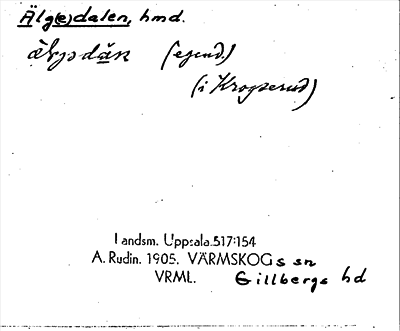 Älg(e)dalen, hmd.
(egend.)
(i Krogserud)
Landsm. Uppsala.517:154
A. Rudin. 1905. VÄRMSKOGs sn
VRML. Gillbergs hd